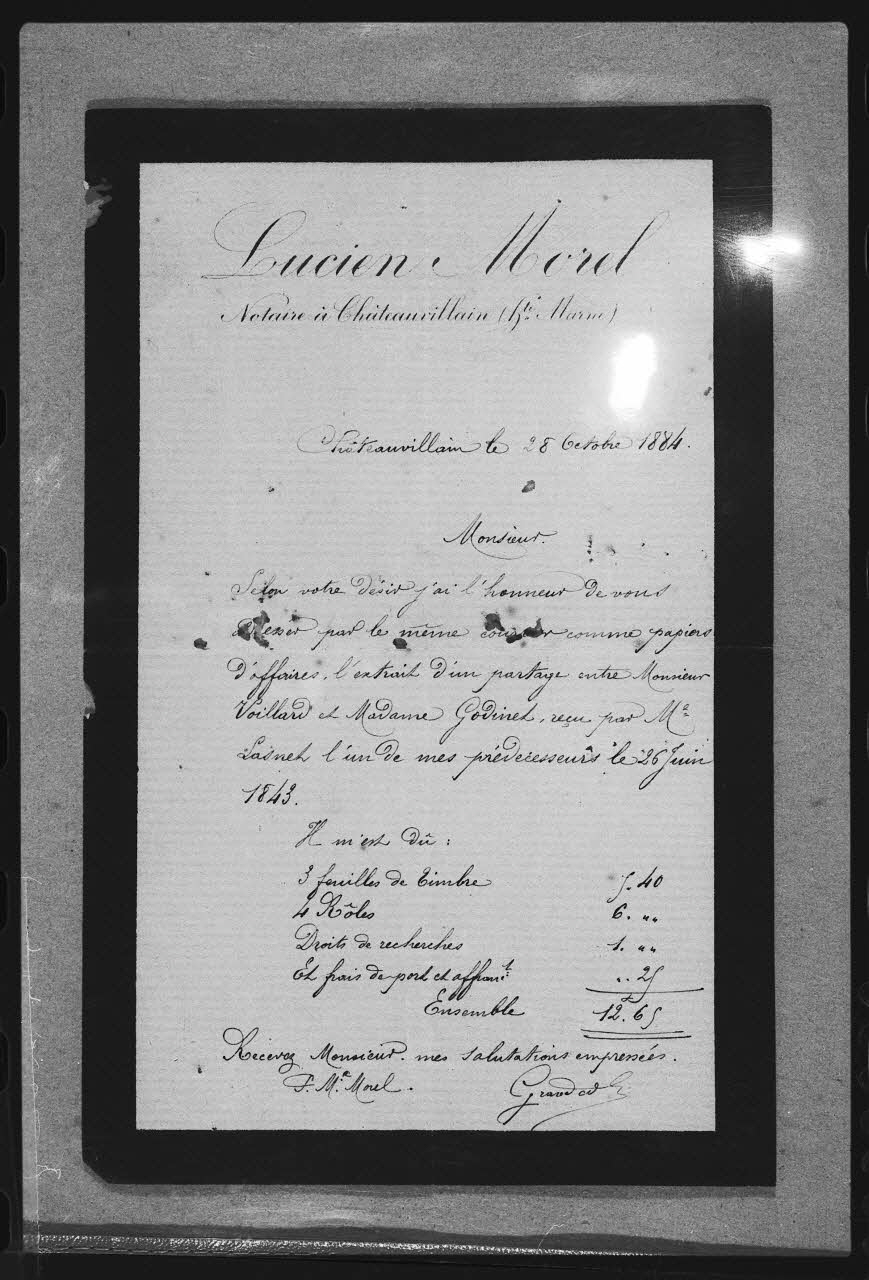 Lucien Morel
Notaire à Châteauvillain (Hte Marne)
Châteauvillain le 28 Octobre 1884.
Monsieur.
Selon votre désir j'ai l'honneur de vous
adresser par le même courrier comme papiers
d'affaires, l'extrait d'un partage entre Monsieur
Voillard et Madame Godinet, reçu par Me
Lasnet l'un de mes prédecesseurs le 26 Juin
1843.
Il m'est dû :
3 feuilles de timbre 5.40
4 Rôles 6. „„
Droits de recherches 1. „„
Et frais de port et affrant „. 25
Ensemble 12.65
Recevez Monsieur. mes salutations empressées.
P. Me Morel.